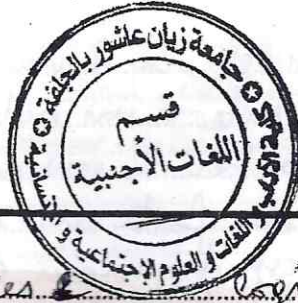 جامعة زيان عاشور بالجلفة
قسم
اللغات الأجنبية
اللغات و العلوم الإجتماعية و الإنسانية